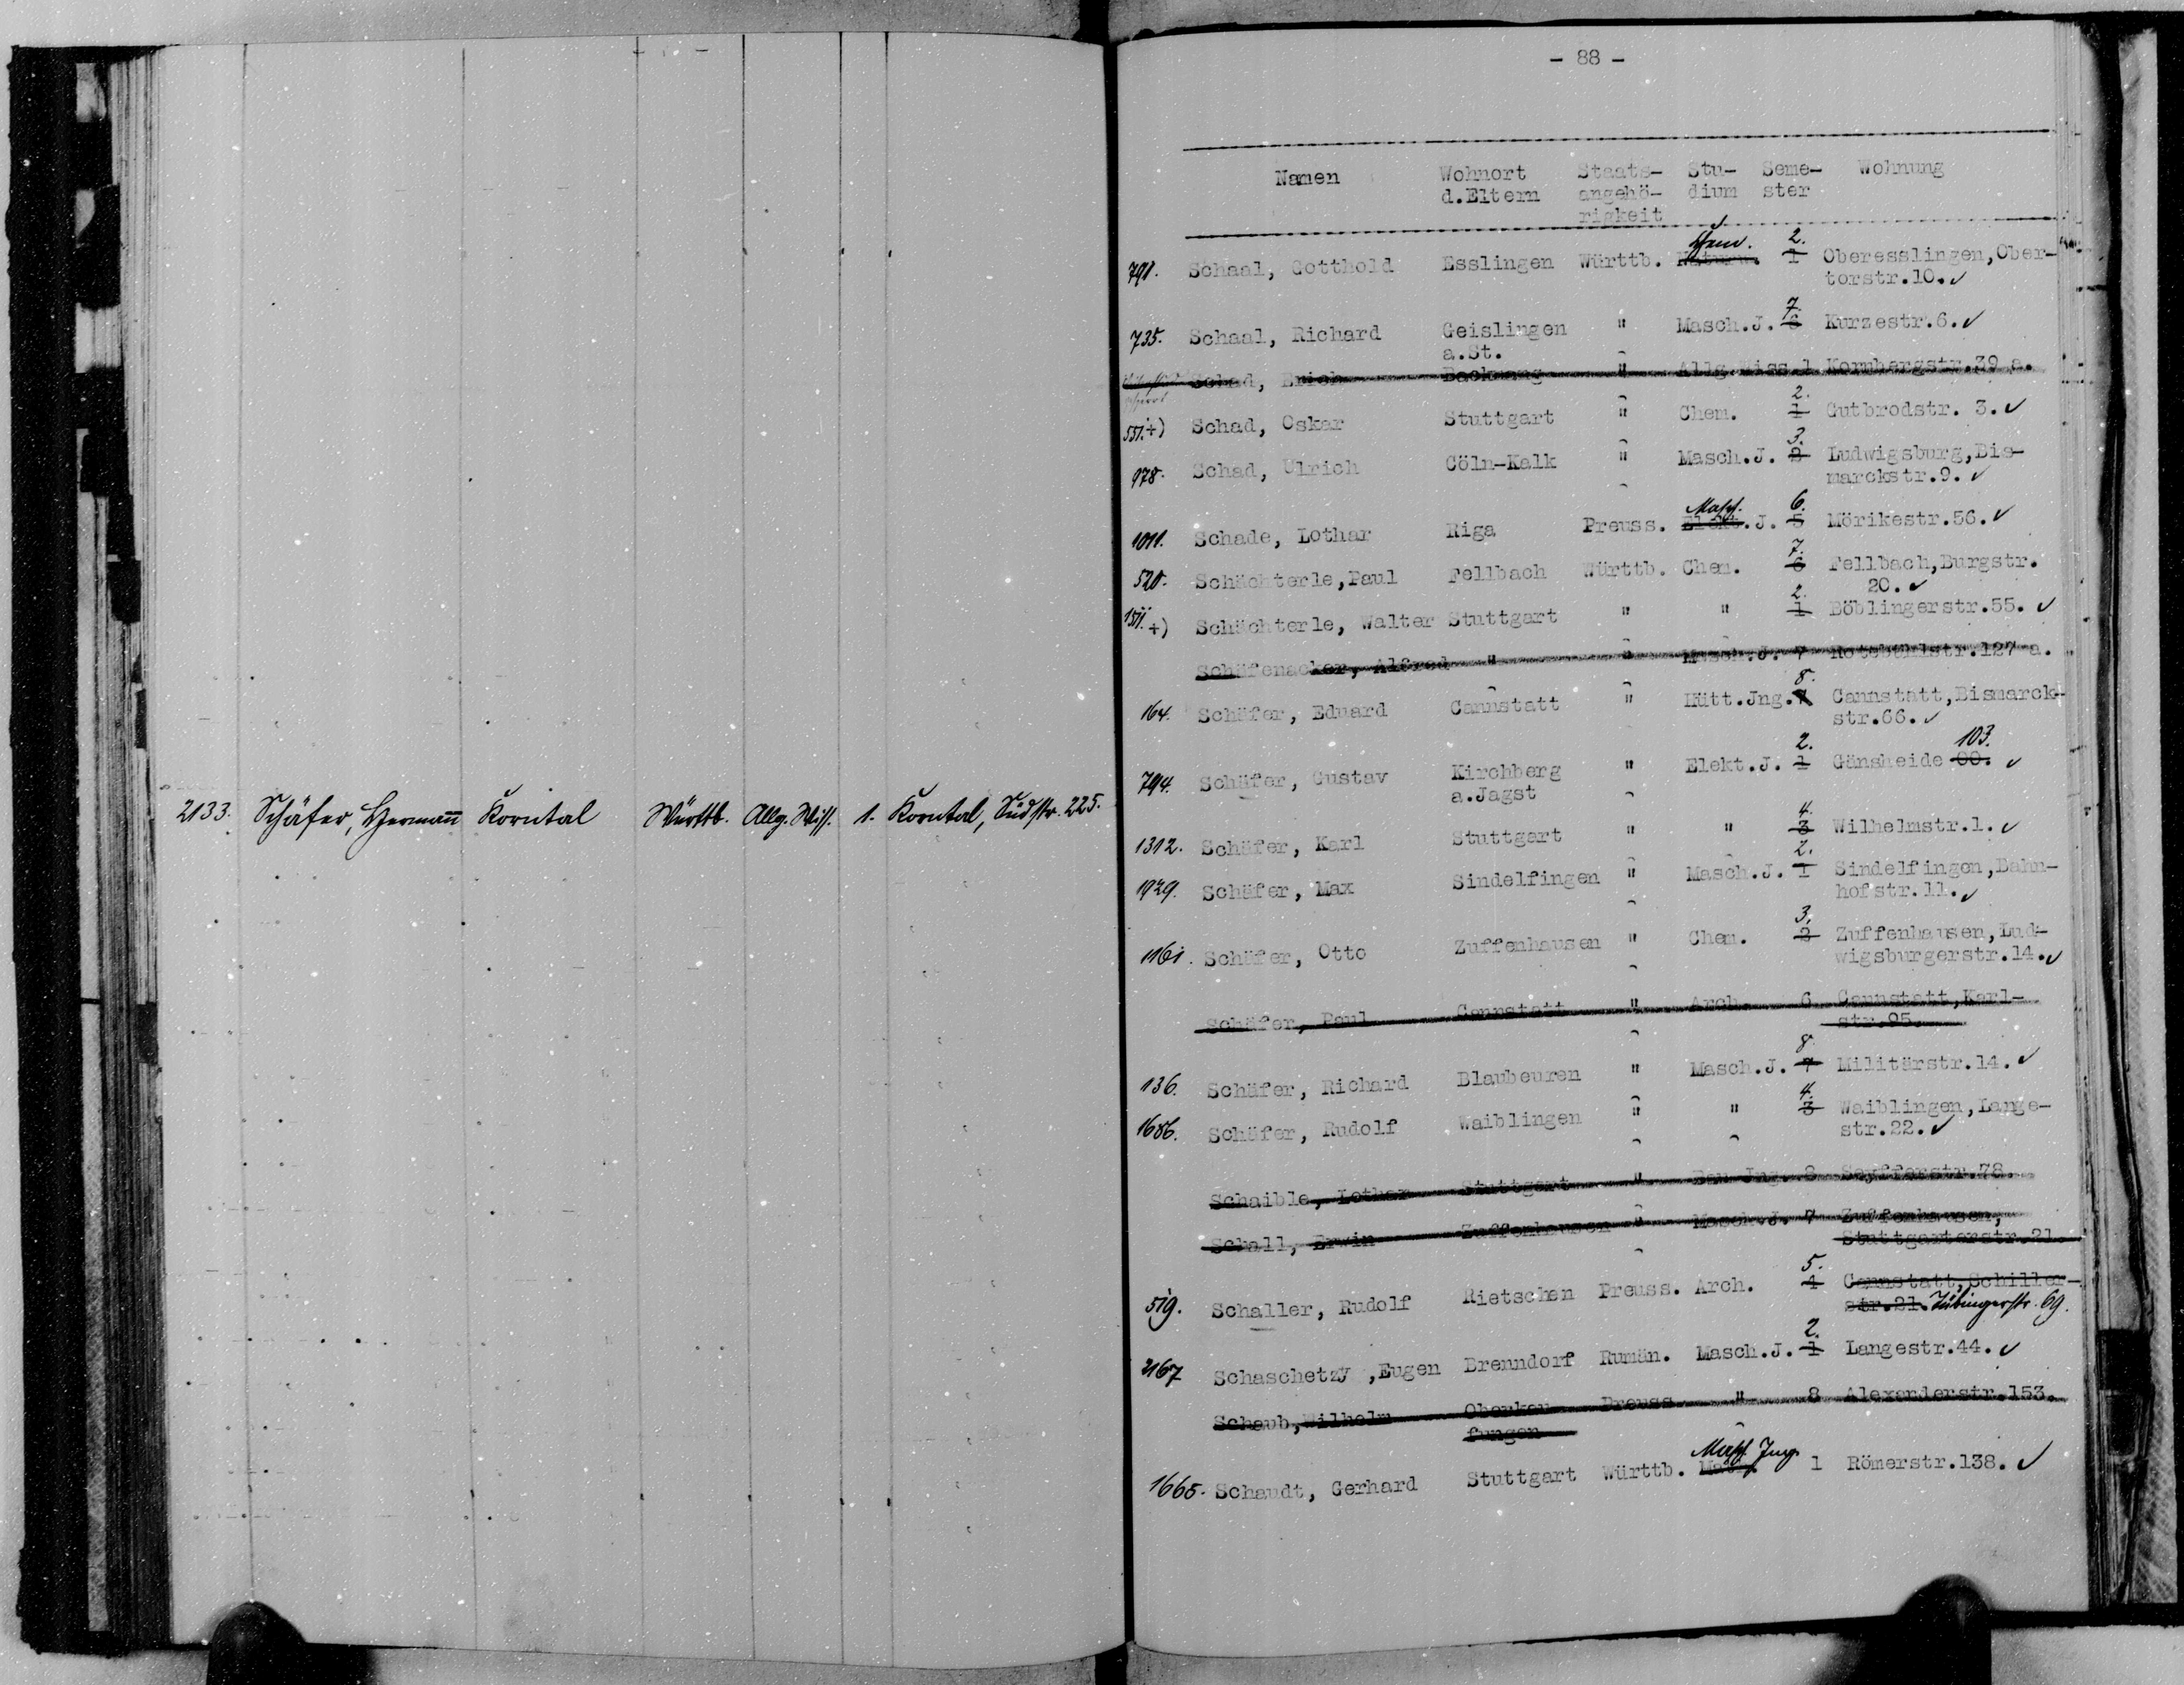 2133. Schäfer, Hermann Korntal Württb. Allg. Wiss. 1. Korntal, Südstr. 225.
- 88 -
Namen Wohnort Staats- Stu- Seme- Wohnung
d.Eltern angehö- dium ster
rigkeit
Chem. 2.
791. Schaal, Gotthold Esslingen Württb. Naturw. 1 Oberesslingen,Ober-
torstr.10. ✓
7.
735. Schaal, Richard Geislingen " Masch.J. 6 Kurzestr.6. ✓
a.St.
Schad, Erich Backnang " Allg.Wiss 1 Kornbergstr.39 a.
2.
551. +) Schad, Oskar Stuttgart " Chem. 1 Gutbrodstr. 3. ✓
3.
978. Schad, Ulrich Cöln-Kalk " Masch.J. 2 Ludwigsburg,Bis-
marckstr.9. ✓
Masch. 6.
1011. Schade, Lothar Riga Preuss. Elekt.J. 5 Mörikestr.56. ✓
7.
520. Schächterle,Paul Fellbach Württb. Chem. 6 Fellbach,Burgstr.
20. ✓
2.
1511. +) Schächterle, Walter Stuttgart " " 1 Böblingerstr.55. ✓
Schäfenacker, Alfred " " Masch.J. 7 Rotebühlstr.127 a.
8.
164. Schäfer, Eduard Cannstatt " Hütt.Jng. 7 Cannstatt,Bismarck-
str.66. ✓
2. 103.
794. Schäfer, Gustav Kirchberg " Elekt.J. 1 Gänsheide 00. ✓
a.Jagst
4.
1312. Schäfer, Karl Stuttgart " " 3 Wilhelmstr.1. ✓
2.
1929. Schäfer, Max Sindelfingen " Masch.J. 1 Sindelfingen,Bahn-
hofstr.11. ✓
3.
1161. Schäfer, Otto Zuffenhausen " Chem. 2 Zuffenhausen,Lud-
wigsburgerstr.14. ✓
Schäfer, Paul Cannstatt " Arch. 6 Cannstatt,Karl-
str.95.
8.
136. Schäfer, Richard Blaubeuren " Masch.J. 7 Militärstr.14. ✓
4.
1686. Schäfer, Rudolf Waiblingen " " 3 Waiblingen,Lange-
str.22. ✓
Schaible, Lothar Stuttgart " Bau-Jng. 8 Seyfferstr.78.
Schall, Erwin Zuffenhausen " Masch.J. 7 Zuffenhausen,
Stuttgarterstr.21.
5.
519. Schaller, Rudolf Rietschen Preuss. Arch. 4 Cannstatt,Schiller-
str.21. Tübingerstr. 69.
2.
2167 Schaschetzy ,Eugen Brenndorf Rumän. Masch.J. 1 Langestr.44. ✓
Schaub,Wilhelm Oberkau- Preuss. " 8 Alexanderstr.153.
fungen
Masch. Jng.
1665. Schaudt, Gerhard Stuttgart Württb. Math. 1 Römerstr.138. ✓